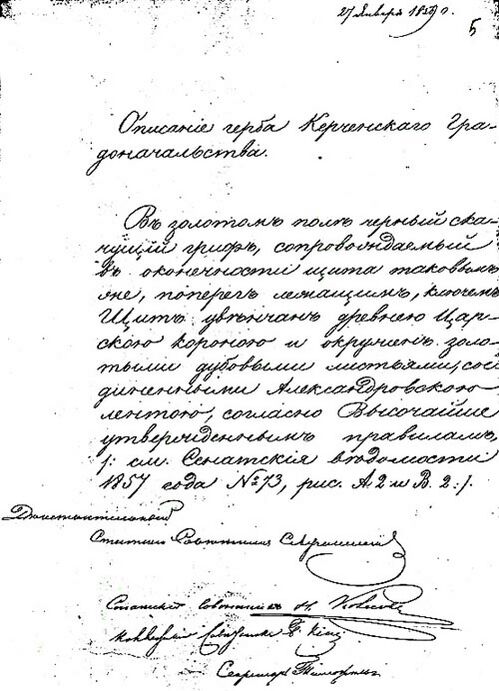 27 Января 1859 г.
5
Описаніе герба Керченскаго Гра-
доначальства.
Въ золотомъ полѣ черный ска-
чущій грифъ, сопровождаемый
въ оконечности щита таковымъ
же, поперегъ лежащимъ, ключемъ
Щитъ увѣнчанъ древнею Цар-
скою короною и окруженъ золо-
тыми дубовыми листьями, сое
диненными Александровскою
лентою, согласно Высочайше
утвержденнымъ правиламъ,
/: см. Сенатскія вѣдомости
1857 года № 73, рис. А. 2 и В. 2 :/.
Дѣйствительный
Статскій Совѣтникъ
Статскій Совѣтникъ
Совѣтникъ
Секретарь